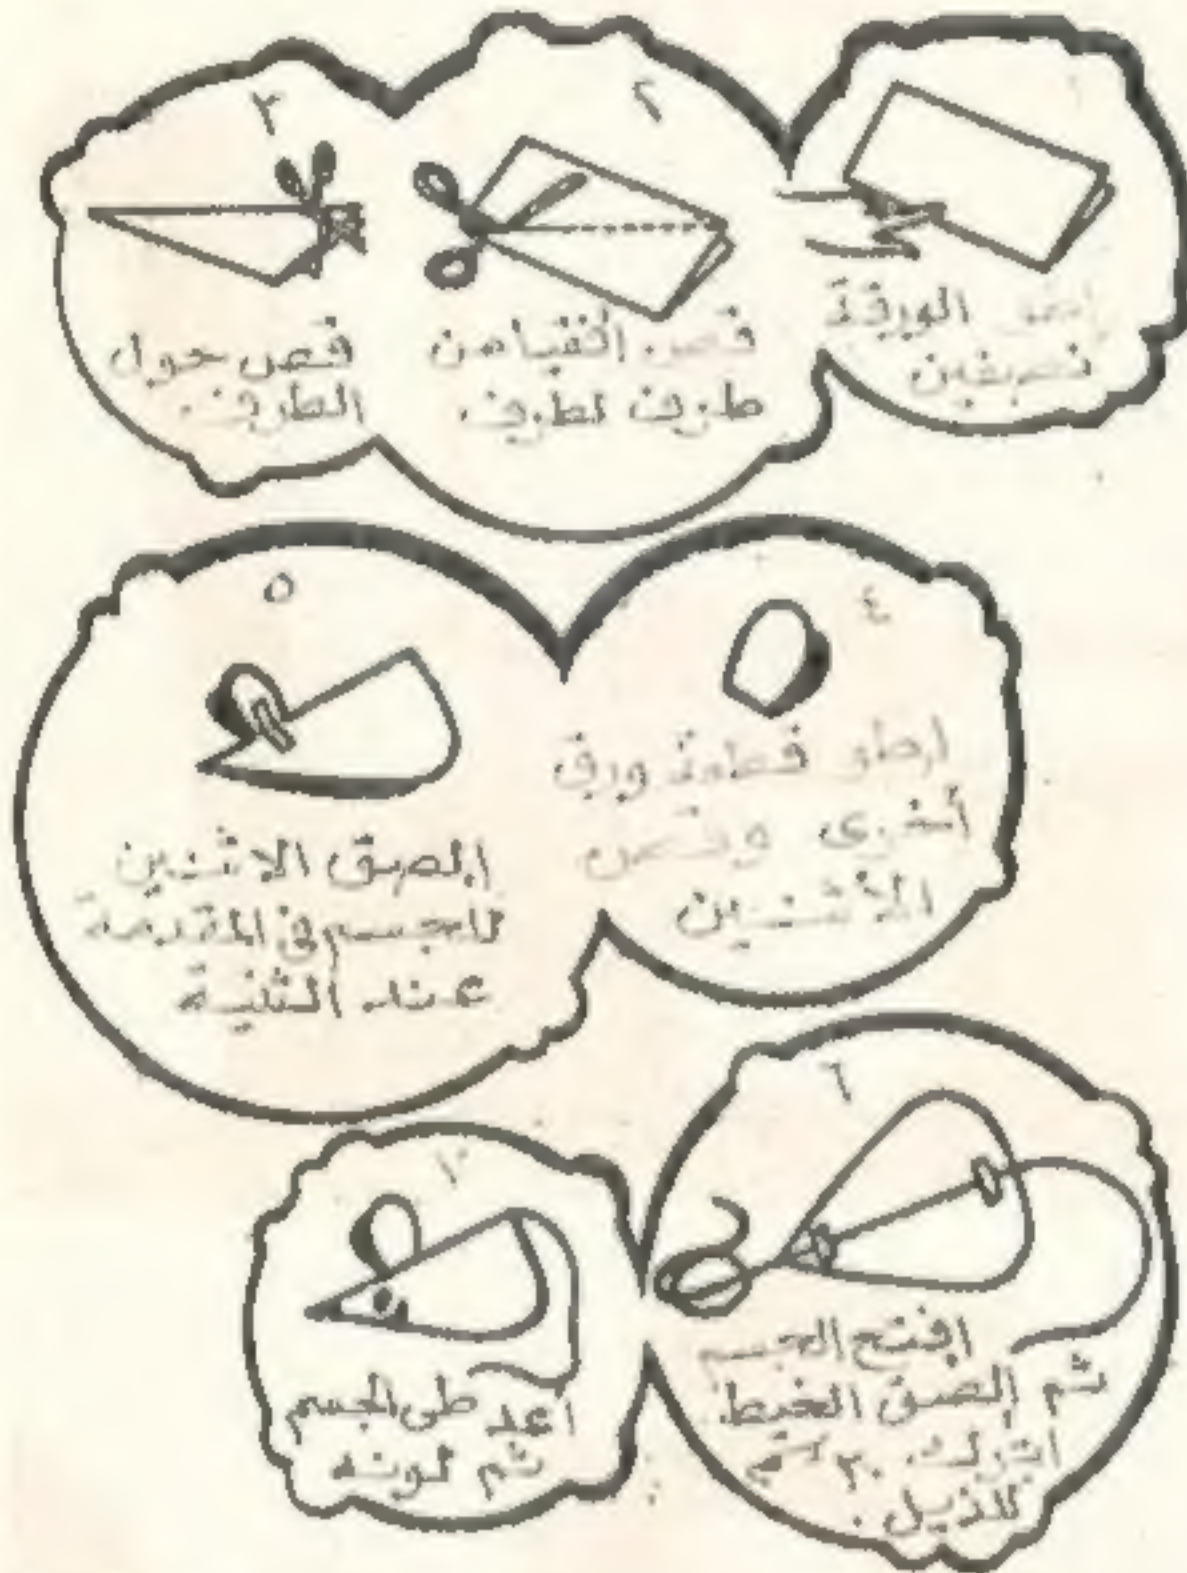 ١
الورقة
نصفين
٢
قص أفقيا من
طرف لطرف
٣
قص حول
الطرف.
٤
اطو قطعة ورق
أخرى وقص
الاثنين
٥
الصق الاثنين
للجسم في المقدمة
عند الثنية
٦
افتح الجسم
ثم الصق الخيط
اترك ٣٠ سم
للذيل.
اعد طى الجسم
ثم لونه